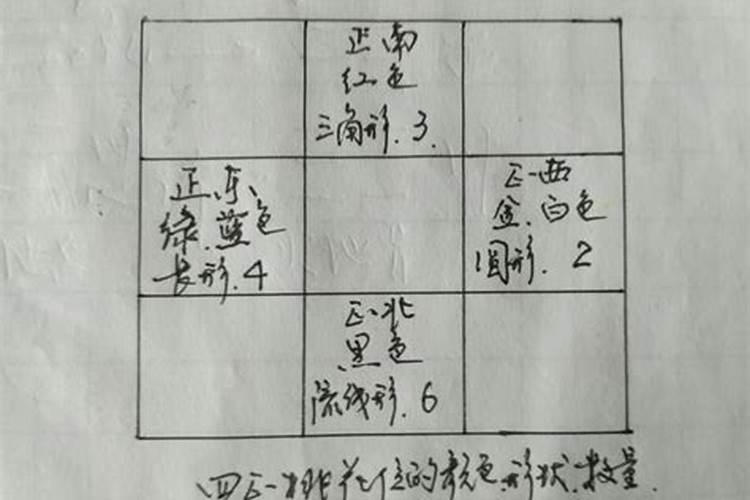 正南
红色
三角形.3.
正东
绿.蓝色
长形.4
正西
金.白色
圆形.2
正北
黑色
线形.6
四正桃花位的颜色.形状.数量.